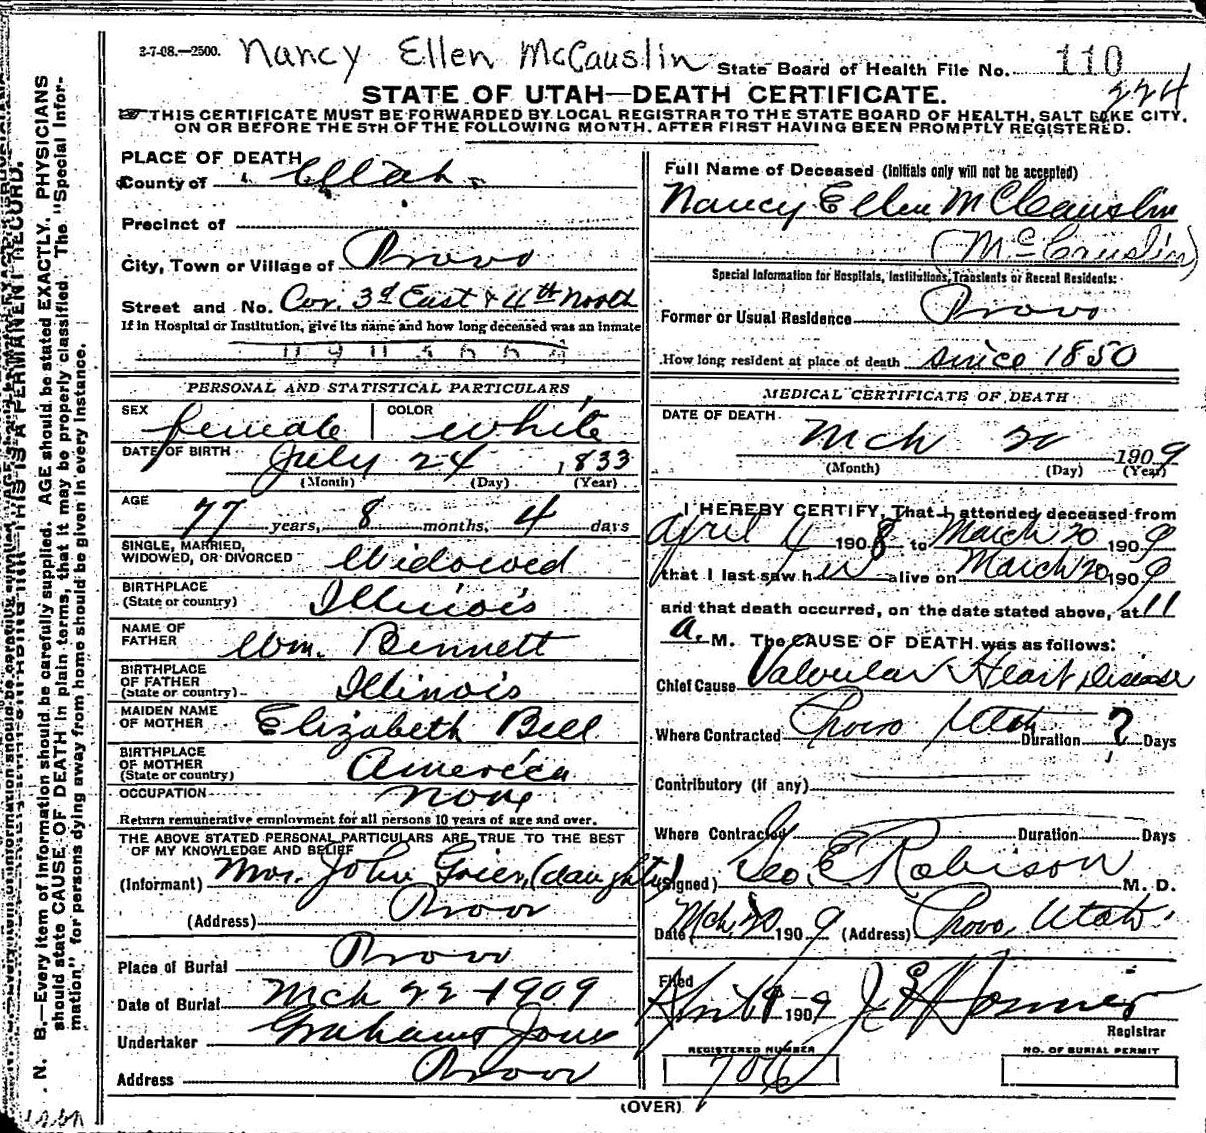 3-7-08.—2500. Nancy Ellen McCauslin State Board of Health File No. 110
224
STATE OF UTAH—DEATH CERTIFICATE.
THIS CERTIFICATE MUST BE FORWARDED BY LOCAL REGISTRAR TO THE STATE BOARD OF HEALTH, SALT LAKE CITY,
ON OR BEFORE THE 5TH OF THE FOLLOWING MONTH, AFTER FIRST HAVING BEEN PROMPTLY REGISTERED.
PLACE OF DEATH
County of Utah
Precinct of
City, Town or Village of Provo
Street and No. Cor. 3d East & 4th North
If in Hospital or Institution, give its name and how long deceased was an inmate
PERSONAL AND STATISTICAL PARTICULARS
SEX female COLOR white
DATE OF BIRTH July 24 1833
(Month) (Day) (Year)
AGE 77 years, 8 months, 4 days
SINGLE, MARRIED,
WIDOWED, OR DIVORCED Widowed
BIRTHPLACE
(State or country) Illinois
NAME OF
FATHER Wm. Bennett
BIRTHPLACE
OF FATHER
(State or country) Illinois
MAIDEN NAME
OF MOTHER Elizabeth Bell
BIRTHPLACE
OF MOTHER
(State or country) America
OCCUPATION none
Return remunerative employment for all persons 10 years of age and over.
THE ABOVE STATED PERSONAL PARTICULARS ARE TRUE TO THE BEST
OF MY KNOWLEDGE AND BELIEF
(Informant) Mrs. John Grier, (daughter)
(Address) Provo
Place of Burial Provo
Date of Burial Mch 22-1909
Undertaker Graham Jones
Address Provo
Full Name of Deceased (Initials only will not be accepted)
Nancy Ellen McCleauslin
(McCauslin)
Special Information for Hospitals, Institutions, Transients or Recent Residents:
Former or Usual Residence Provo
How long resident at place of death since 1850
MEDICAL CERTIFICATE OF DEATH
DATE OF DEATH
Mch 20 1909
(Month) (Day) (Year)
I HEREBY CERTIFY, That I attended deceased from
April 4 1908 to March 20 1909
that I last saw her alive on March 20 1909
and that death occurred, on the date stated above, at 11
a. M. The CAUSE OF DEATH was as follows:
Chief Cause Valvular Heart Disease
Where Contracted Provo Utah Duration ? Days
Contributory (if any)
Where Contracted Duration Days
(Signed) Geo. E. Robison M. D.
Date Mch, 20 1909 (Address) Provo, Utah.
Filed April 9-1909 J E Horner
Registrar
REGISTERED NUMBER
706
NO. OF BURIAL PERMIT
(OVER)
N. B.—Every item of information should be carefully supplied. AGE should be stated EXACTLY. PHYSICIANS
should state CAUSE OF DEATH in plain terms, that it may be properly classified. The "Special Infor-
mation" for persons dying away from home should be given in every instance.
THIS IS A PERMANENT RECORD.